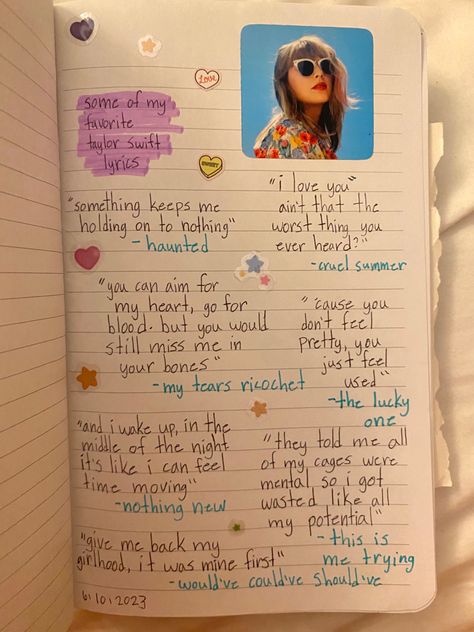 some of my
favorite
taylor swift
lyrics
LOVE
SWEET
"something keeps me
holding on to nothing"
- haunted
"i love you"
ain't that the
worst thing you
ever heard?"
- cruel summer
"you can aim for
my heart, go for
blood. but you would
still miss me in
your bones"
- my tears ricochet
"'cause you
don't feel
pretty, you
just feel
used"
- the lucky
one
"and i wake up, in the
middle of the night
it's like i can feel
time moving"
- nothing new
"they told me all
of my cages were
mental, so i got
wasted like all
my potential"
- this is
me trying
"give me back my
girlhood, it was mine first"
- would've could've should've
6|10|2023